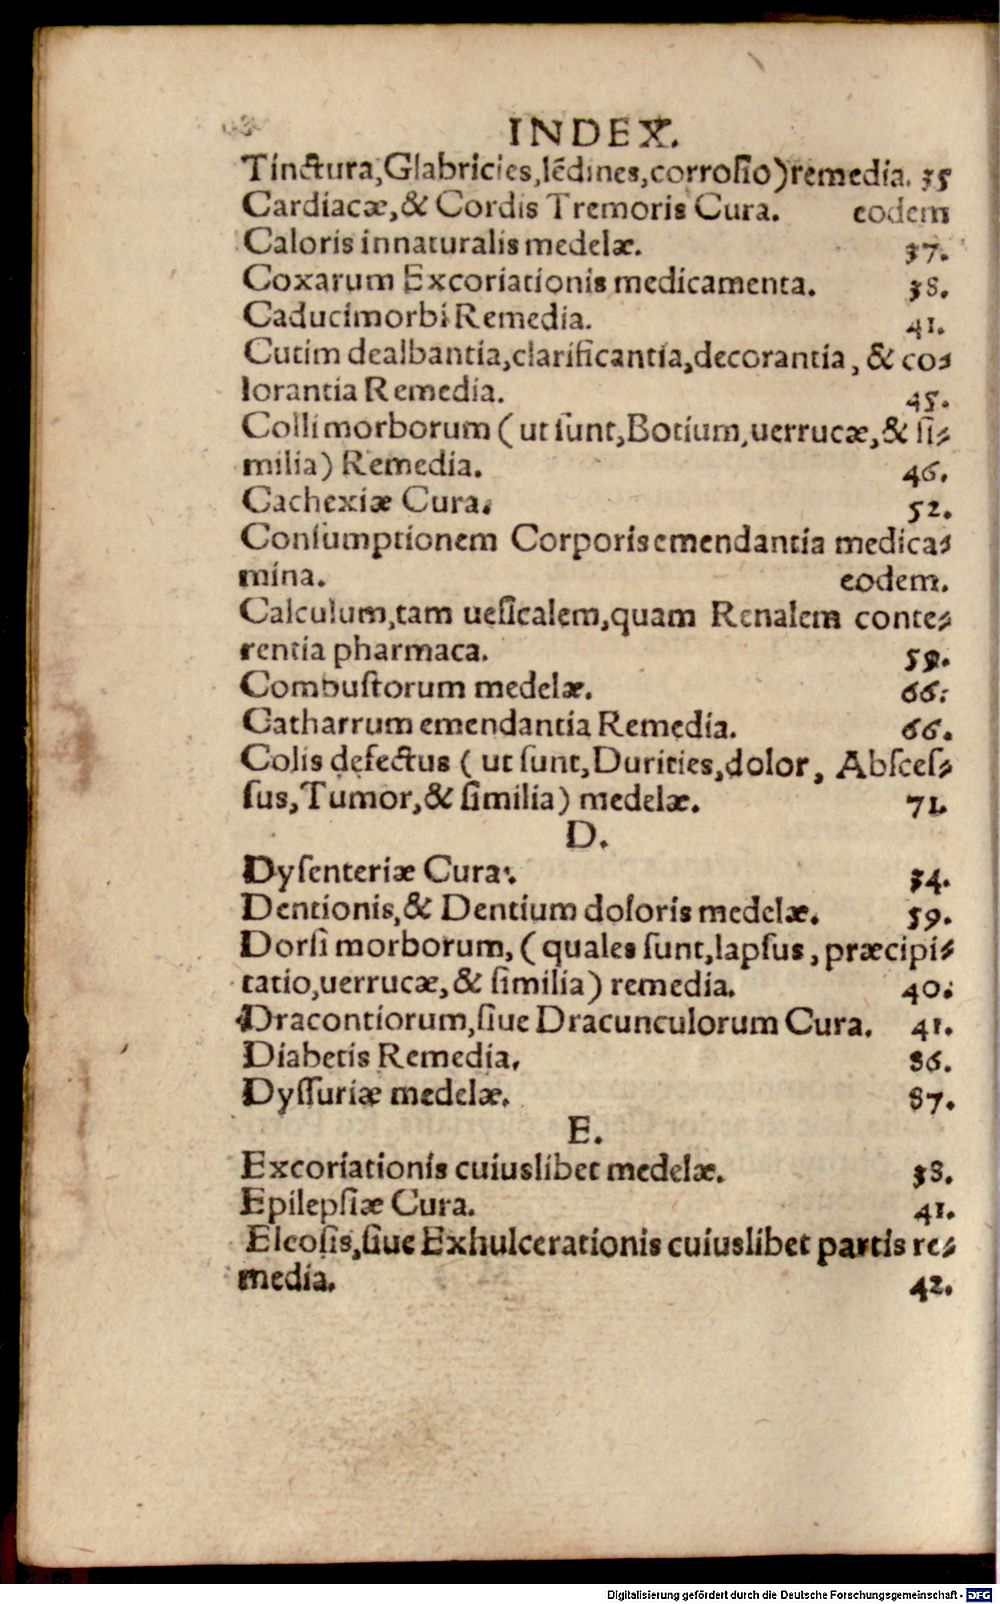 INDEX.
Tinctura,Glabricies,lẽdines,corroſio)remedia. 35
Cardiacæ,& Cordis Tremoris Cura. eodem
Caloris innaturalis medelæ. 37.
Coxarum Excoriationis medicamenta. 38.
Caducimorbi Remedia. 41.
Cutim dealbantia,clarificantia,decorantia, & co⸗
lorantia Remedia. 45.
Colli morborum ( ut ſunt,Botium,uerrucæ,& ſi⸗
milia) Remedia. 46.
Cachexiæ Cura. 52.
Conſumptionem Corporis emendantia medica⸗
mina. eodem.
Calculum,tam ueſicalem,quam Renalem conte⸗
rentia pharmaca. 59.
Combuſtorum medelæ. 66.
Catharrum emendantia Remedia. 66.
Colis defectus ( ut ſunt,Durities,dolor, Abſceſ⸗
ſus,Tumor,& ſimilia) medelæ. 71.
D.
Dyſenteriæ Cura. 34.
Dentionis,& Dentium doloris medelæ. 39.
Dorſi morborum, ( quales ſunt,lapſus, præcipi⸗
tatio,uerrucæ,& ſimilia) remedia. 40.
Dracontiorum,ſiue Dracunculorum Cura. 41.
Diabetis Remedia. 86.
Dyſſuriæ medelæ. 87.
E.
Excoriationis cuiuslibet medelæ. 38.
Epilepſiæ Cura. 41.
Elcoſis,ſiue Exhulcerationis cuiuslibet partis re⸗
media. 42.
Digitalisierung gefördert durch die Deutsche Forschungsgemeinschaft - DFG